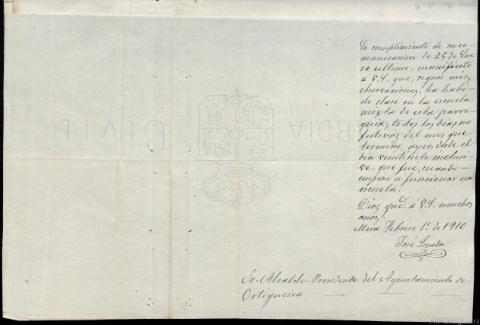 En cumplimiento de su co-
municación de 25 de Ene-
ro último, manifiesto
á V.S. que, segun mis
observaciones, ha habi-
do clase en la escuela
mixta de esta parro-
quia, todos los dias no
festivos del mes que
terminó ayer, desde el
dia veintisiete inclusi-
ve, que fué, cuando
empezó a funcionar esa
escuela.
Dios gue. á V.S. muchos
años.
Mera Febrero 1º de 1910
José Losada
Sr. Alcalde-Presidente del Ayuntamiento de
Ortigueira